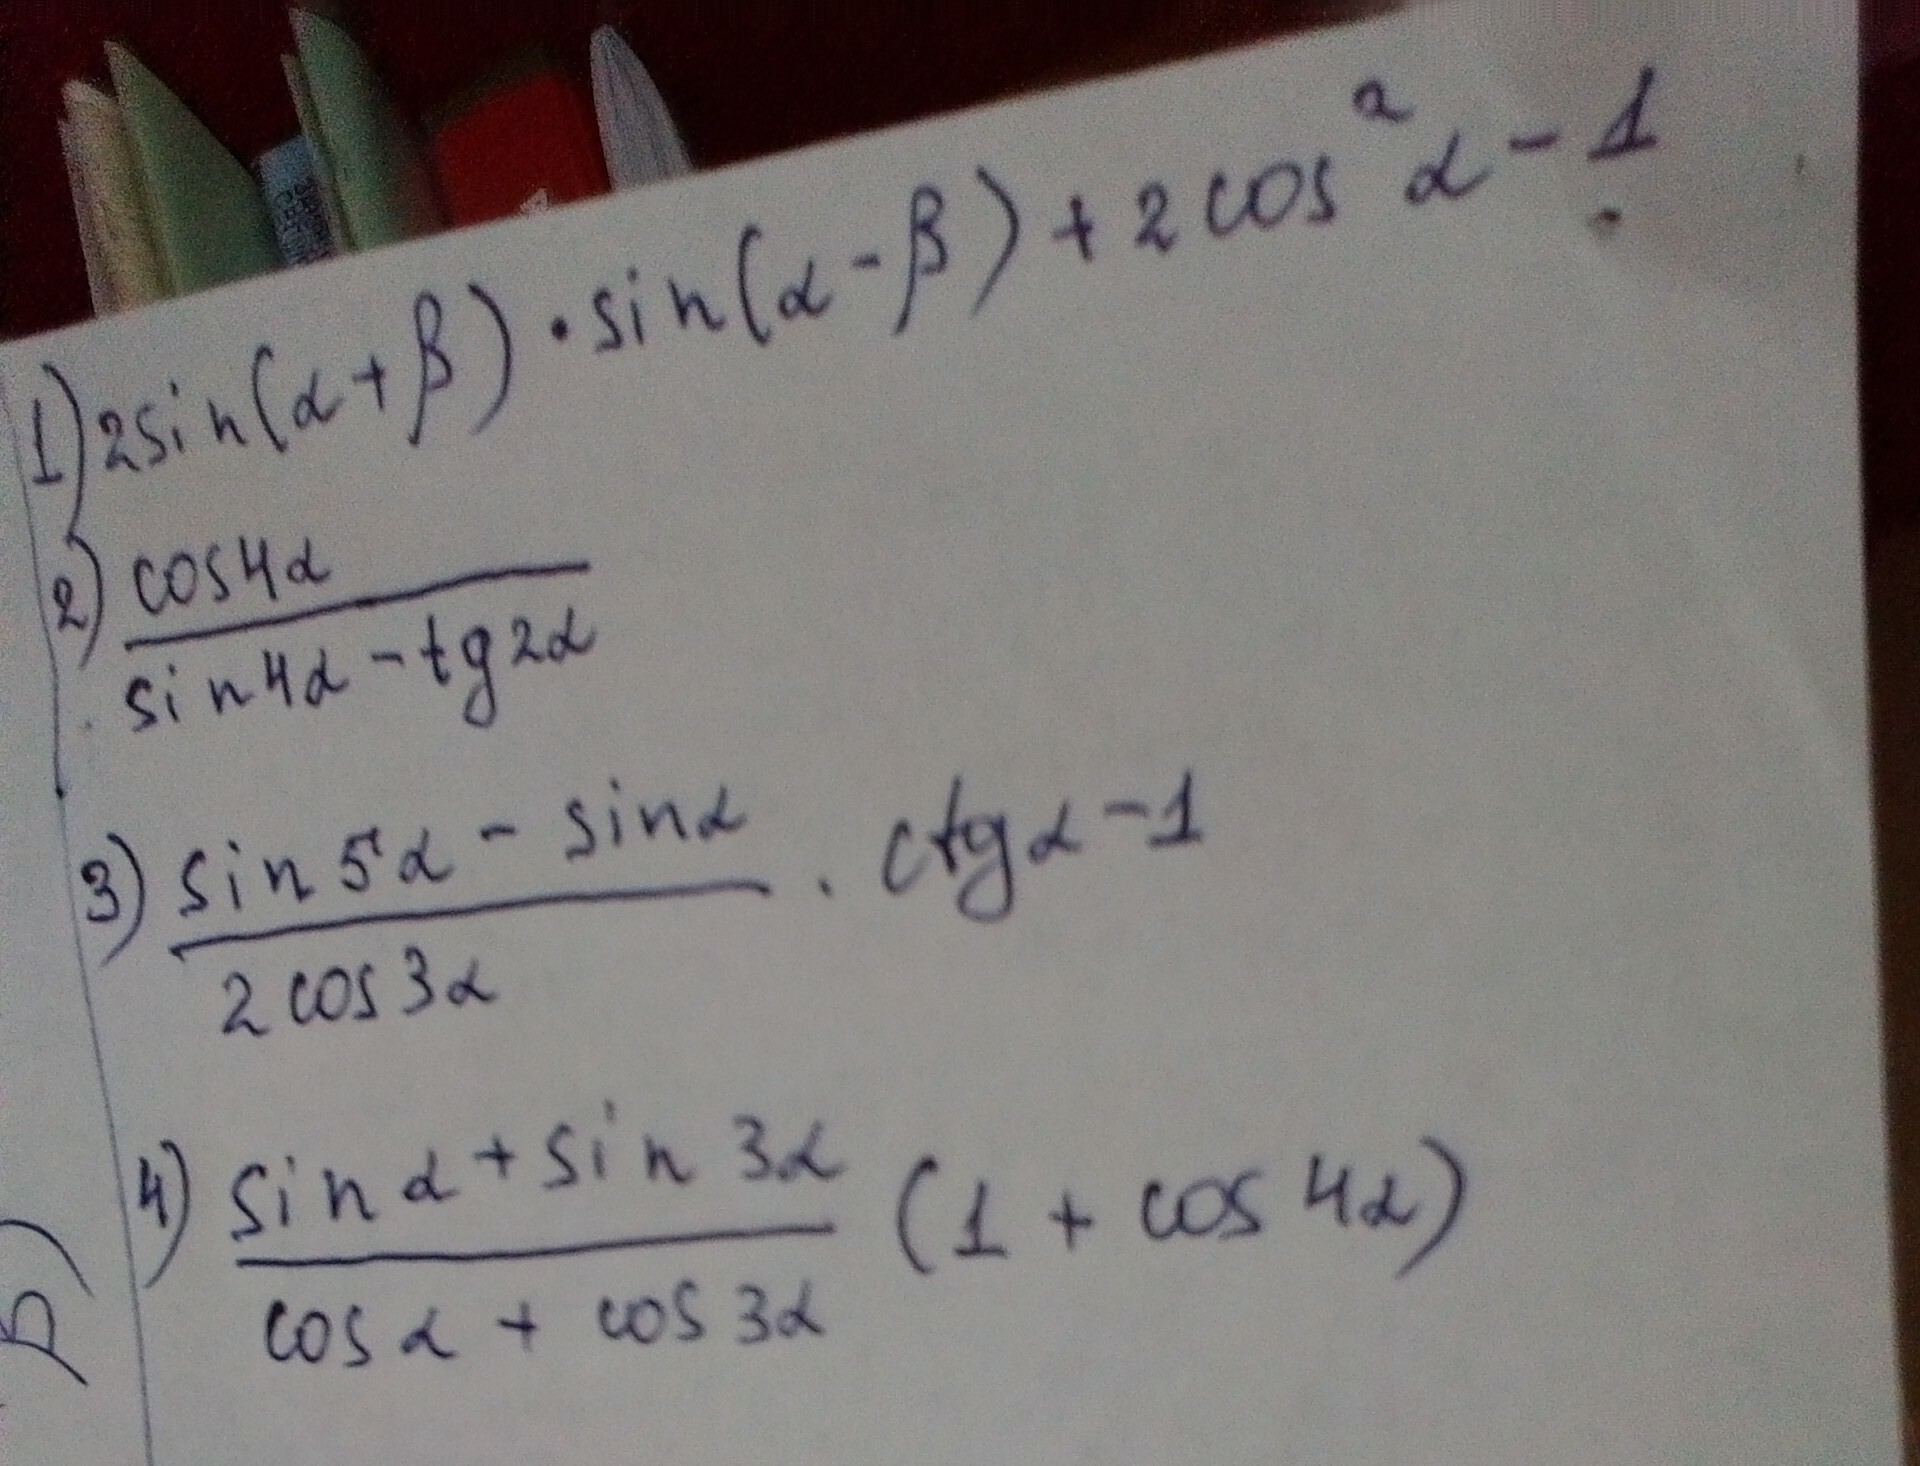 1) 2sin(α+β)·sin(α-β)+2cos²α-1
2) cos4α
sin4α-tg2α
3) sin5α - sinα · ctgα-1
2cos3α
4) sinα+sin3α (1+cos4α)
cosα + cos3α